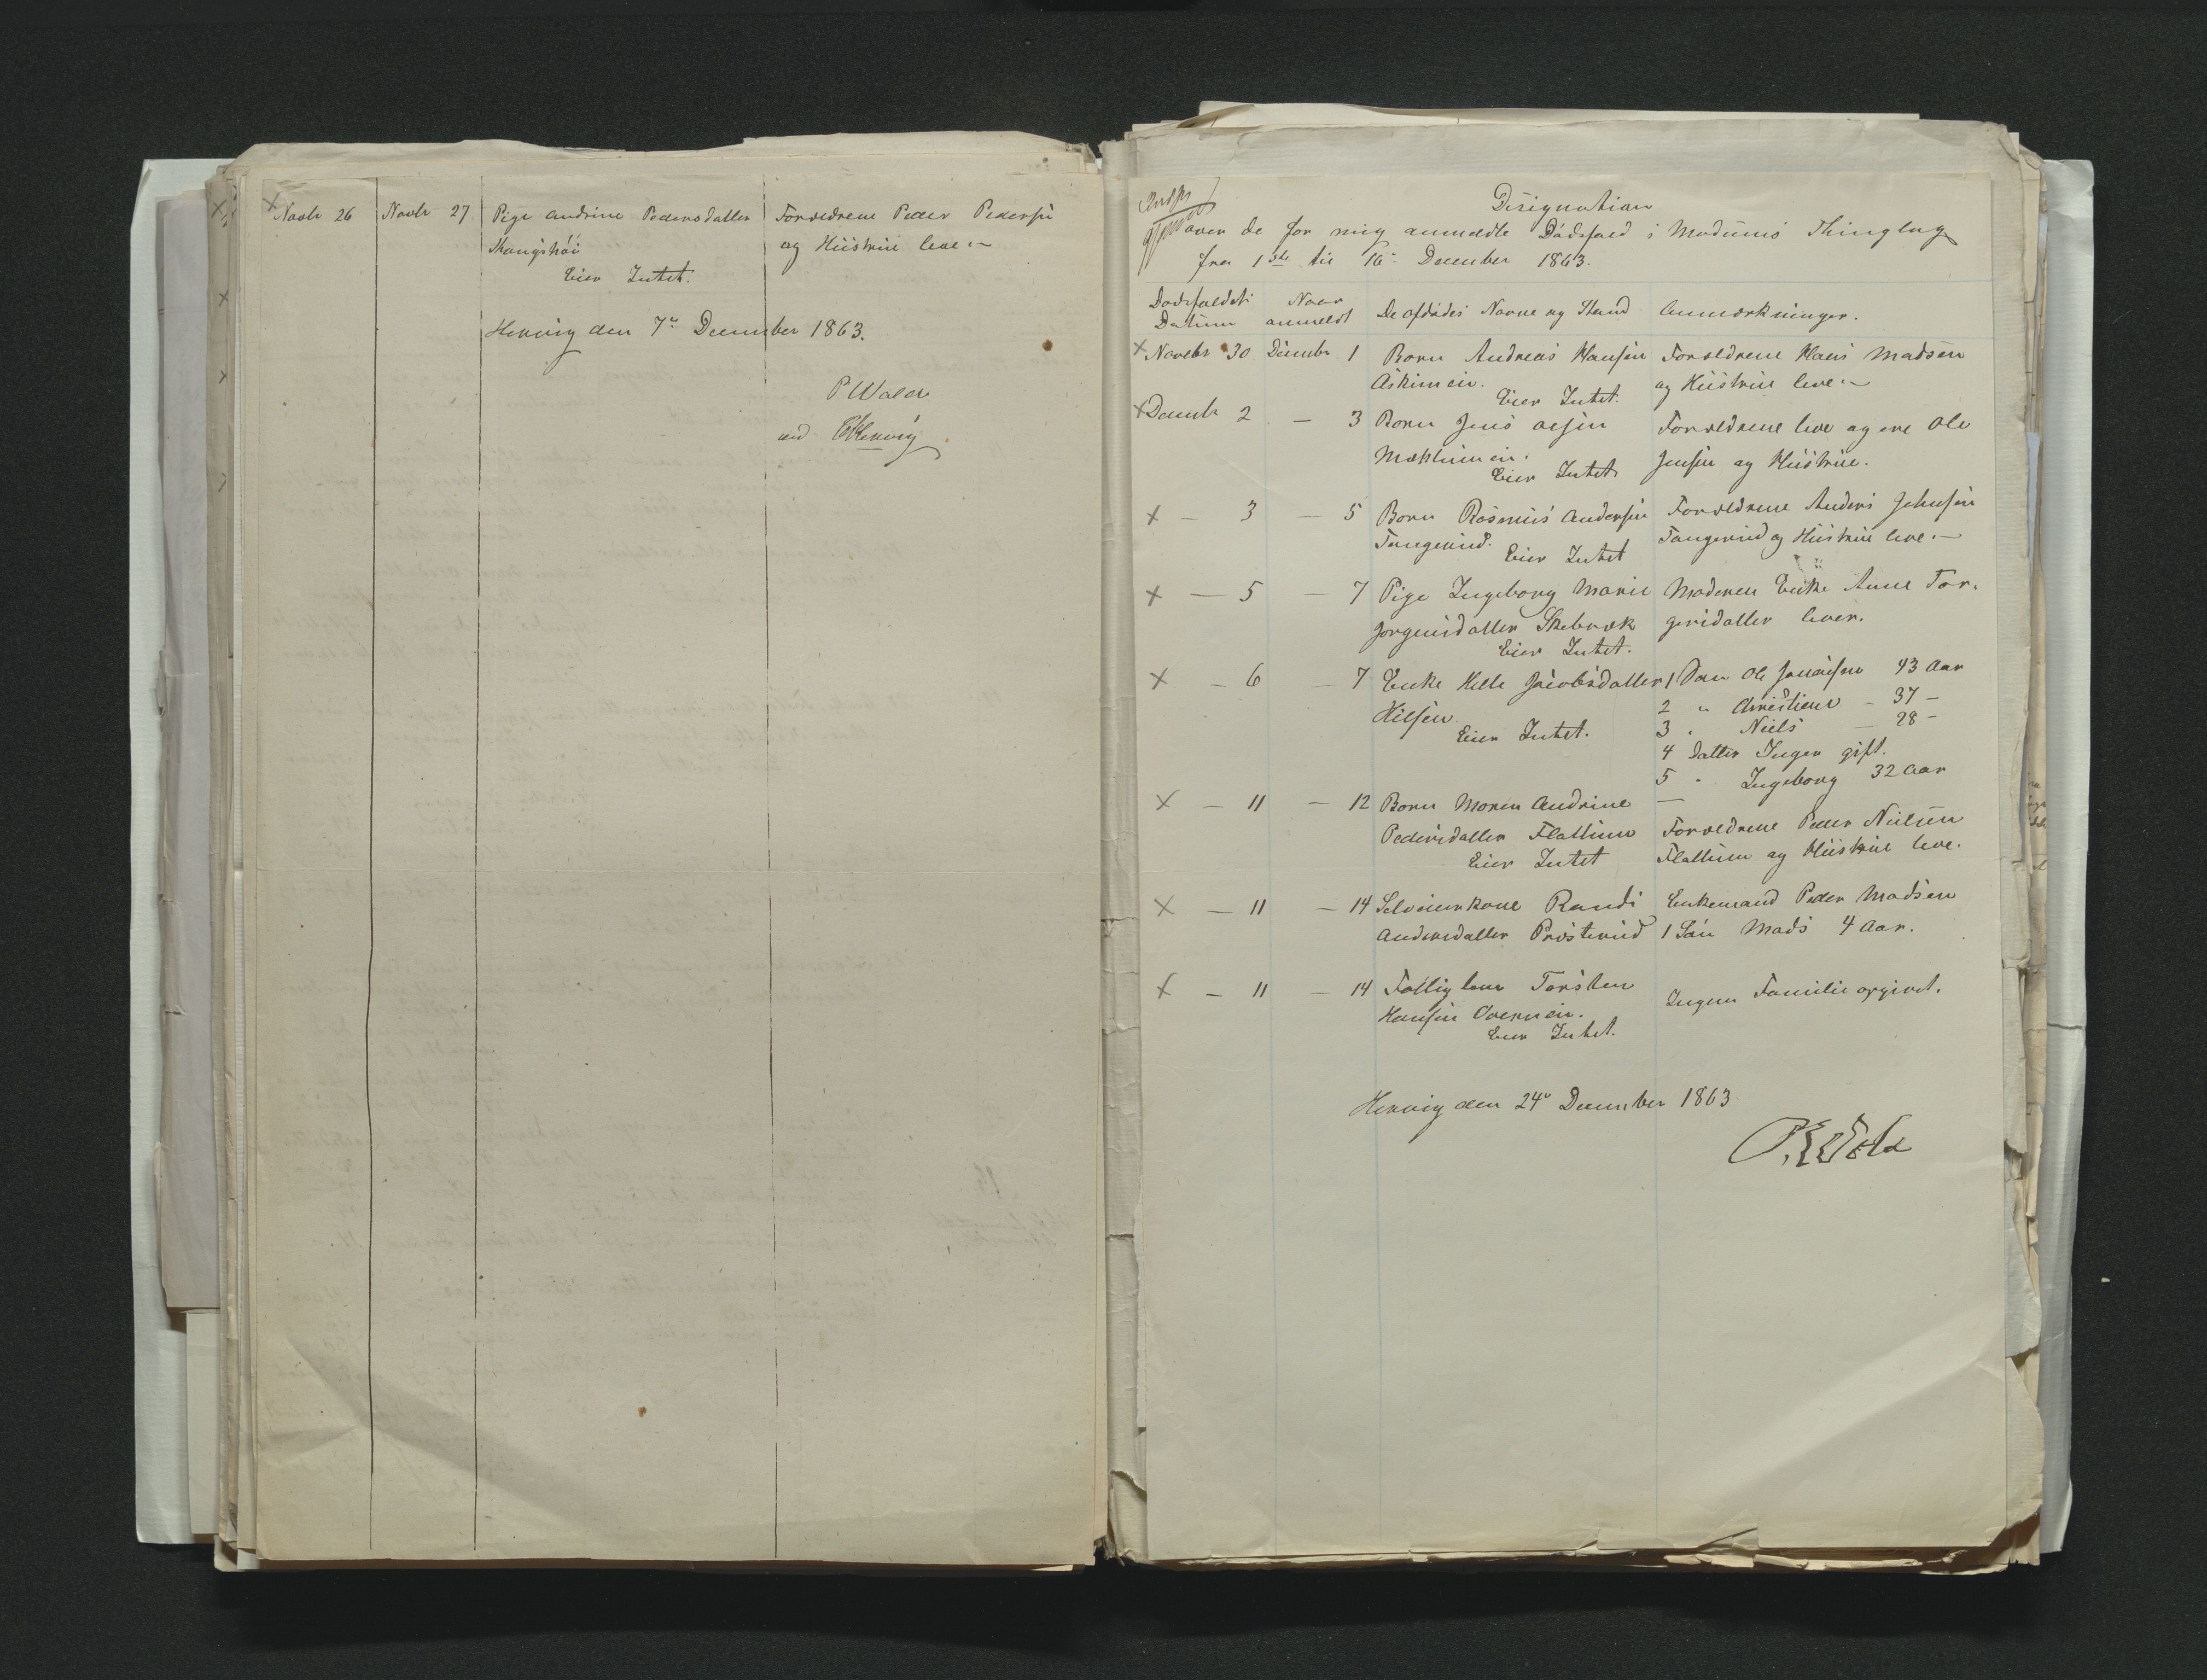 Novbr 26 Novbr 27 Pige Andrine Pedersdatter Forældrene Peder Pedersen
og Hüstrüe leve.
Eier Intet.
den 7de December 1863.
ved
Designation
over de for mig anmeldte Dödsfald i Modums Thinglag
fra 1ste til 16de December 1863.
Dødsfaldets Naar De afdødes Navne og Stand Anmærkninger.
Datum anmeldt
Novebr 30 Decembr 1 Barn Andreas Hansen Forældrene Hans Madsen
og Hüstrüe leve.
Eier Intet.
Decmbr 2 — 3 Barn Jens Olsen Forældrene leve og ere Ole
Jensen og Hüstrüe.
Eier Intet
— 3 — 5 Barn Rasmüs Andersen Forældrene Anders Johnsen
Tangerüd. Tangerüd og Hüstrüe leve.
Eier Intet
— 5 — 7 Pige Ingeborg Marie Moderen Enke Anne Tor-
Jørgensdatter Skebræk gersdatter lever.
Eier Intet.
— 6 — 7 Enke Helle Jacobsdatter 1 Søn Ole 43 Aar
Hilsen. 2 " Christian - 37 -
Eier Intet. 3 " Niels — 28 -
4 Datter Inger gift.
5 " Ingeborg 32 Aar
— 11 — 12 Barn Maren Andrine —
Pedersdatter Flattüm Forældrene Peder Nielsen
Eier Intet Flattüm og Hüstrüe leve.
— 11 — 14 Selveierkone Randi Enkemand Peder Madsen
Andersdatter Præsterüd 1 Sön Mads 4 Aar.
— 11 — 14 Fattiglem Torsten Ingen Familie opgivet.
Hansen
Eier Intet.
den 24de December 1863